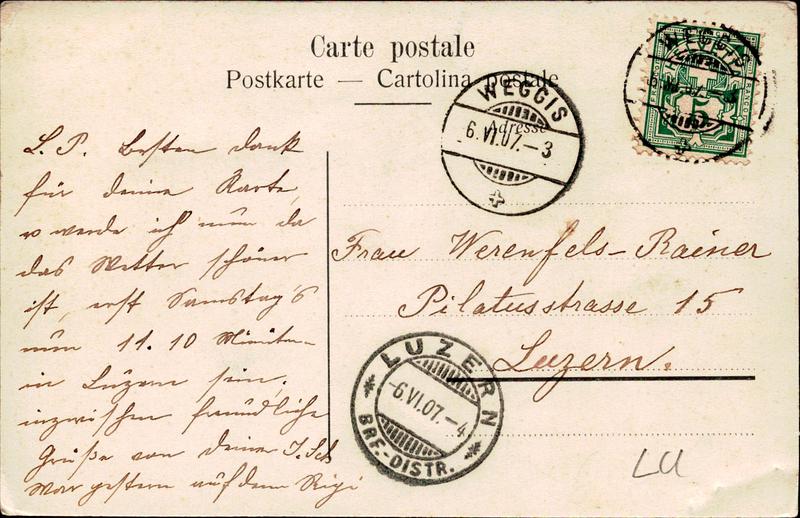 Carte postale
Postkarte — Cartolina postale
Adresse
WEGGIS
6.VI.07.-3
WEGGIS
FRANCO
5
L. P. besten Dank
für deine Karte,
so werde ich nun da
das Wetter schöner
ist, erst Samstag's
um 11.10 Minuten
in Luzern sein,
inzwischen freundliche
Grüße von deiner J. Sch
War gestern auf dem Rigi
Frau Werenfels-Rainer
Pilatusstrasse 15
Luzern.
LUZERN
-6.VI.07.-4
BRF.-DISTR.
LU